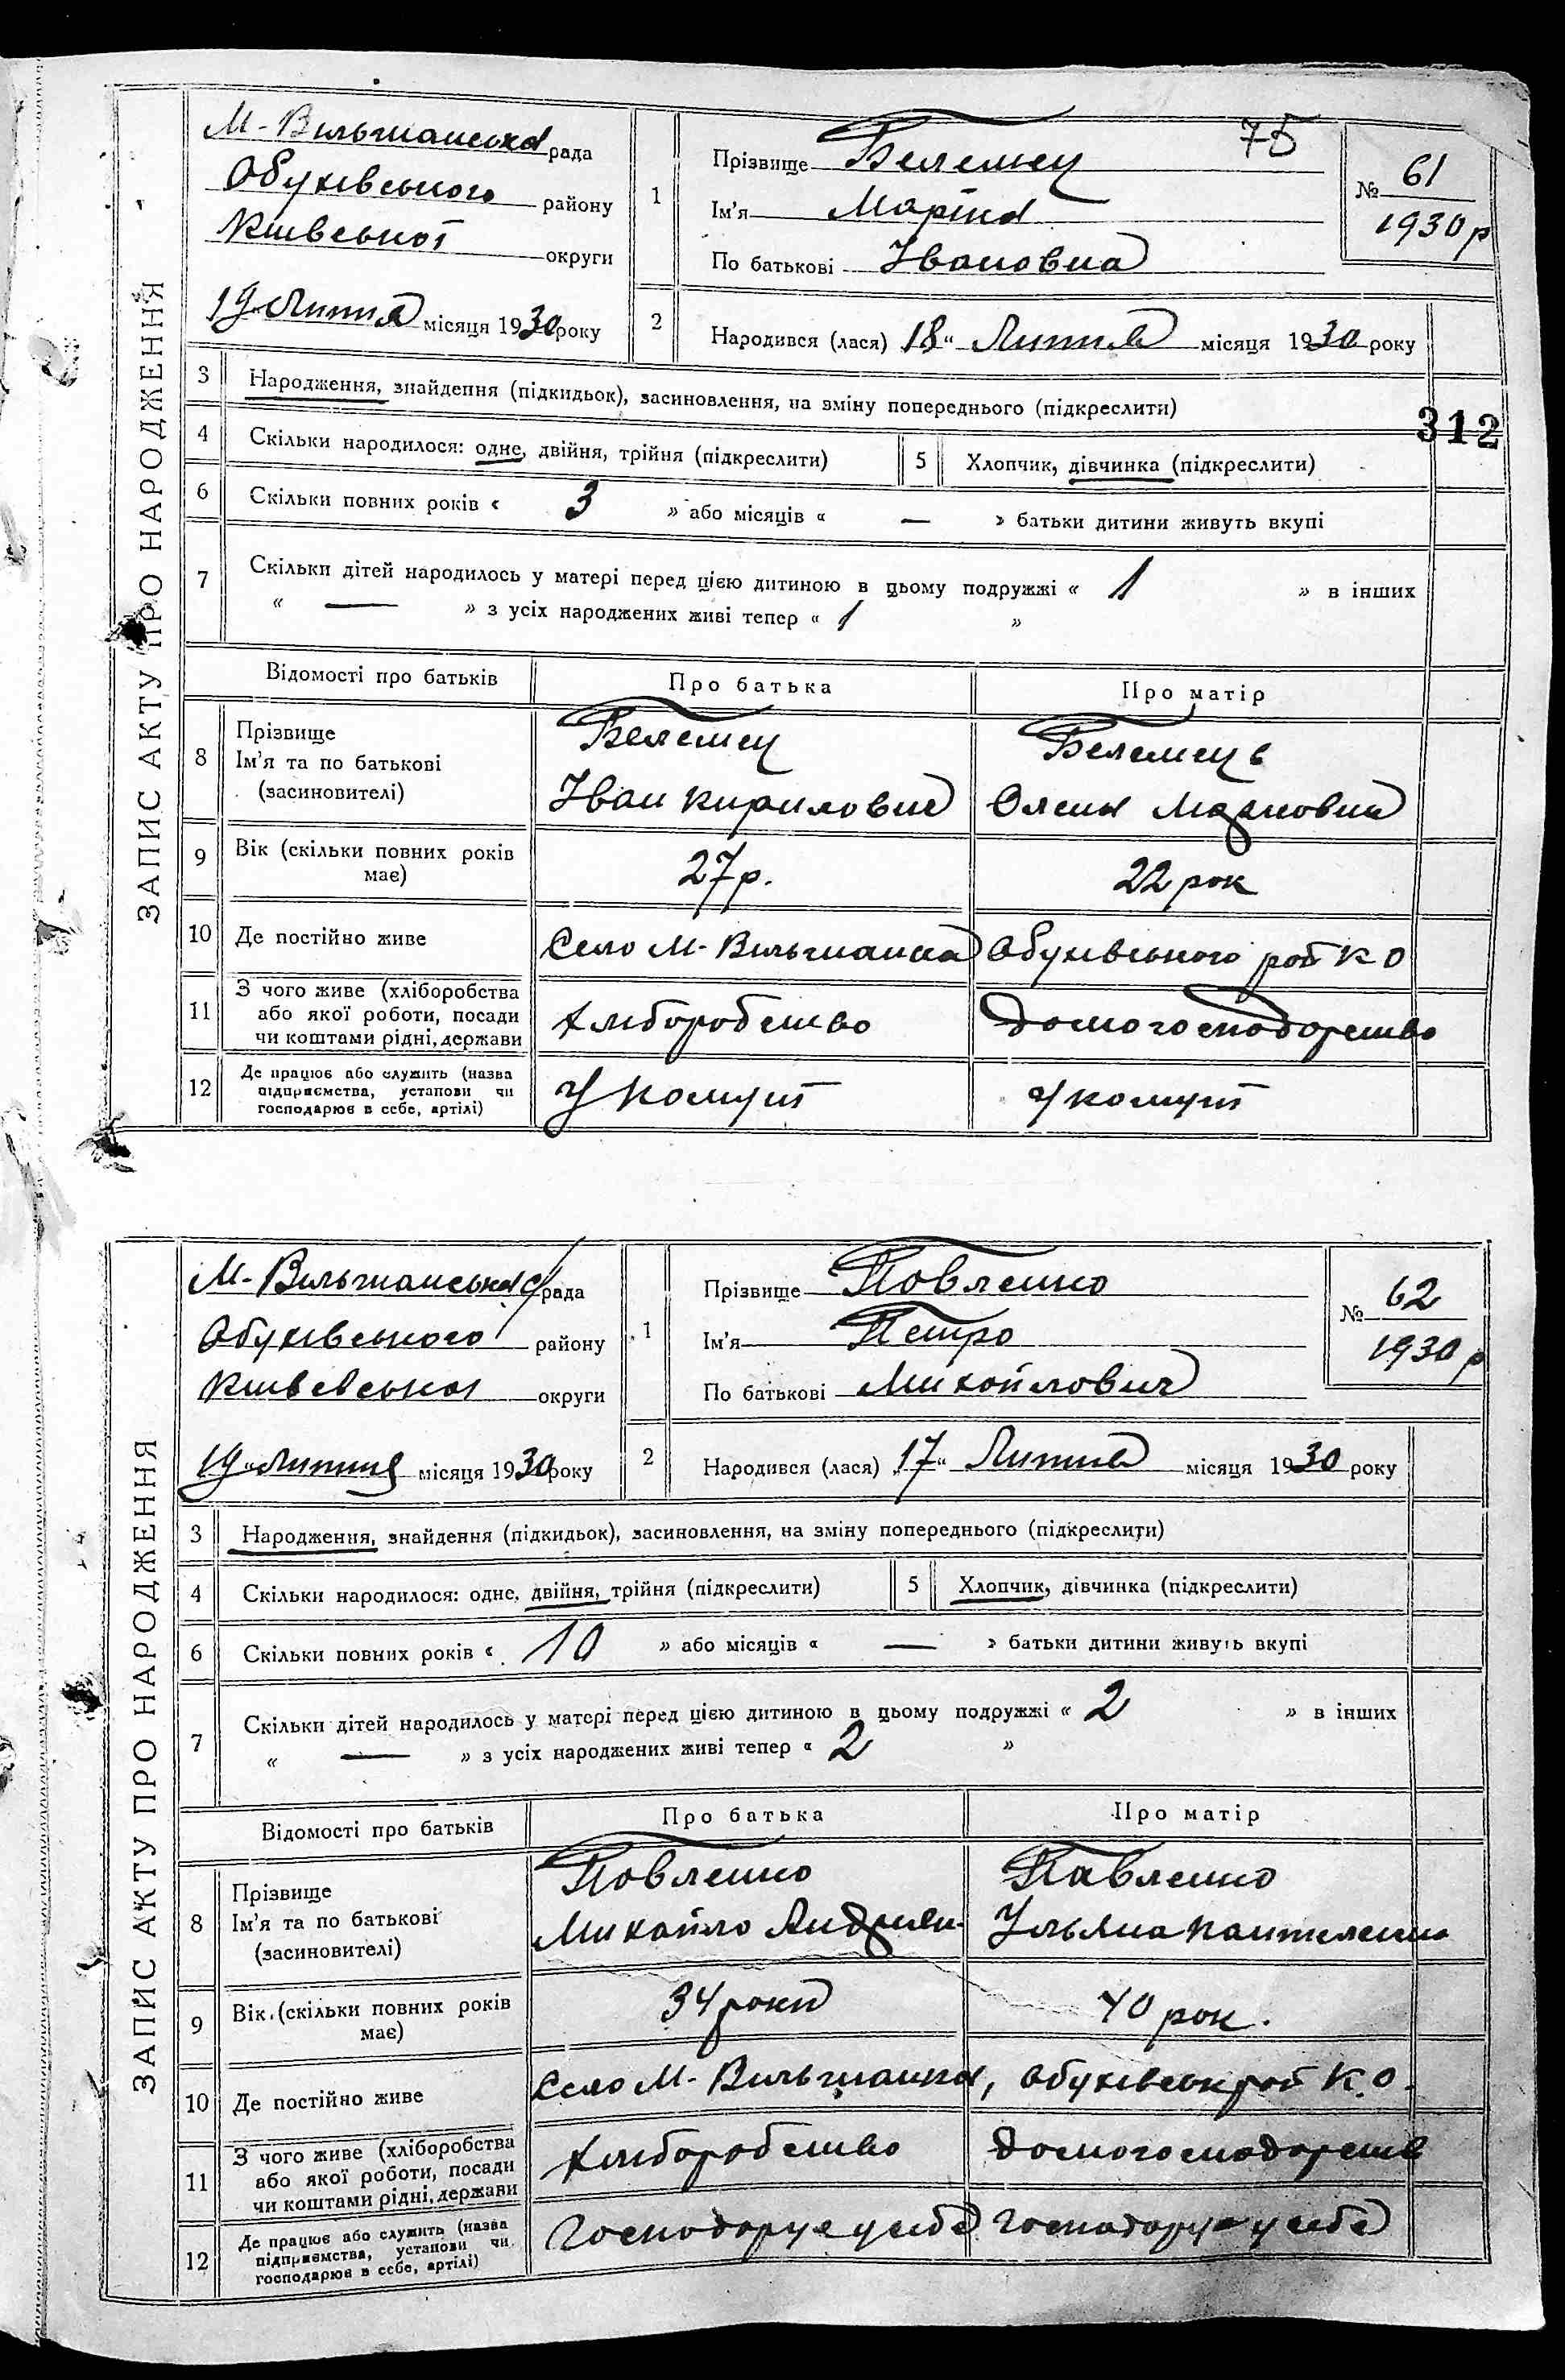 ЗАПИС АКТУ ПРО НАРОДЖЕННЯ
М-Вильшанська рада
Обухівського району
Київської округи
19 Липня місяця 1930 року
1
Прізвище Белемец
75
Ім'я Марина
По батькові Івановна
№ 61
1930 р
2
Народився (лася) 18 " Липня місяця 1930 року
3 Народження, знайдення (підкидьок), засиновлення, на зміну попереднього (підкреслити)
312
4 Скільки народилося: одне, двійня, трійня (підкреслити) 5 Хлопчик, дівчинка (підкреслити)
6 Скільки повних років « 3 » або місяців « — » батьки дитини живуть вкупі
7 Скільки дітей народилось у матері перед цією дитиною в цьому подружжі « 1 » в інших
« — » з усіх народжених живі тепер « 1 »
Відомості про батьків Про батька Про матір
8 Прізвище Белемец Белемець
Ім'я та по батькові Іван Кирилович Олена Марковна
(засиновителі)
9 Вік (скільки повних років має) 27 р. 22 рок
10 Де постійно живе Село М-Вильшанка Обухівського рай К О
11 З чого живе (хліборобства або якої роботи, посади чи коштами рідні, держави Хліборобство Домогосподарство
12 Де працює або служить (назва підприємства, установи чи господарює в себе, артілі) У комуні У комуні
ЗАПИС АКТУ ПРО НАРОДЖЕННЯ
М-Вильшанська с/рада
Обухівського району
округи
19 " Липня місяця 1930 року
1
Прізвище Павленко
Ім'я Петро
По батькові Михайлович
№ 62
1930 р
2
Народився (лася) „17 " Липня місяця 1930 року
3 Народження, знайдення (підкидьок), засиновлення, на зміну попереднього (підкреслити)
4 Скільки народилося: одне, двійня, трійня (підкреслити) 5 Хлопчик, дівчинка (підкреслити)
6 Скільки повних років « 10 » або місяців « — » батьки дитини живуть вкупі
7 Скільки дітей народилось у матері перед цією дитиною в цьому подружжі « 2 » в інших
« — » з усіх народжених живі тепер « 2 »
Відомості про батьків Про батька Про матір
8 Прізвище Павленко Павленко
Ім'я та по батькові Михайло Андриян. Ульяна
(засиновителі)
9 Вік (скільки повних років має) 34 роки 40 рок.
10 Де постійно живе Село М-Вильшанка, Обухівськ рай К.О.
11 З чого живе (хліборобства або якої роботи, посади чи коштами рідні, держави Хліборобство Домогосподарств
12 Де працює або служить (назва підприємства, установи чи господарює в себе, артілі) Господарує у себе Господарує у себе